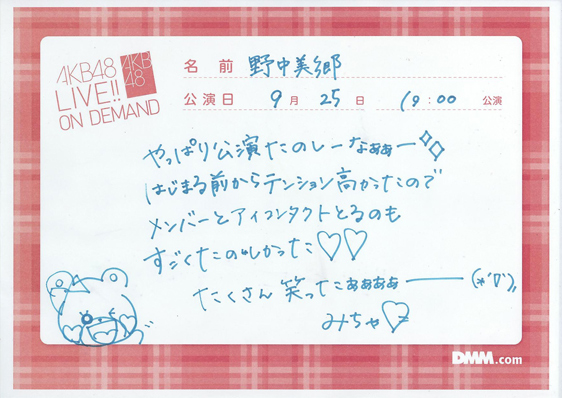 AKB48
LIVE!!
ON DEMAND
AKB
48
名前 野中美郷
公演日 9月25日 19:00 公演
やっぱり公演たのしーなぁぁー
はじまる前からテンション高かったので
メンバーとアイコンタクトとるのも
すごくたのしかった♡♡
たくさん笑ったぁぁぁぁー (*´∇`)
みちゃ♡
DMM.com